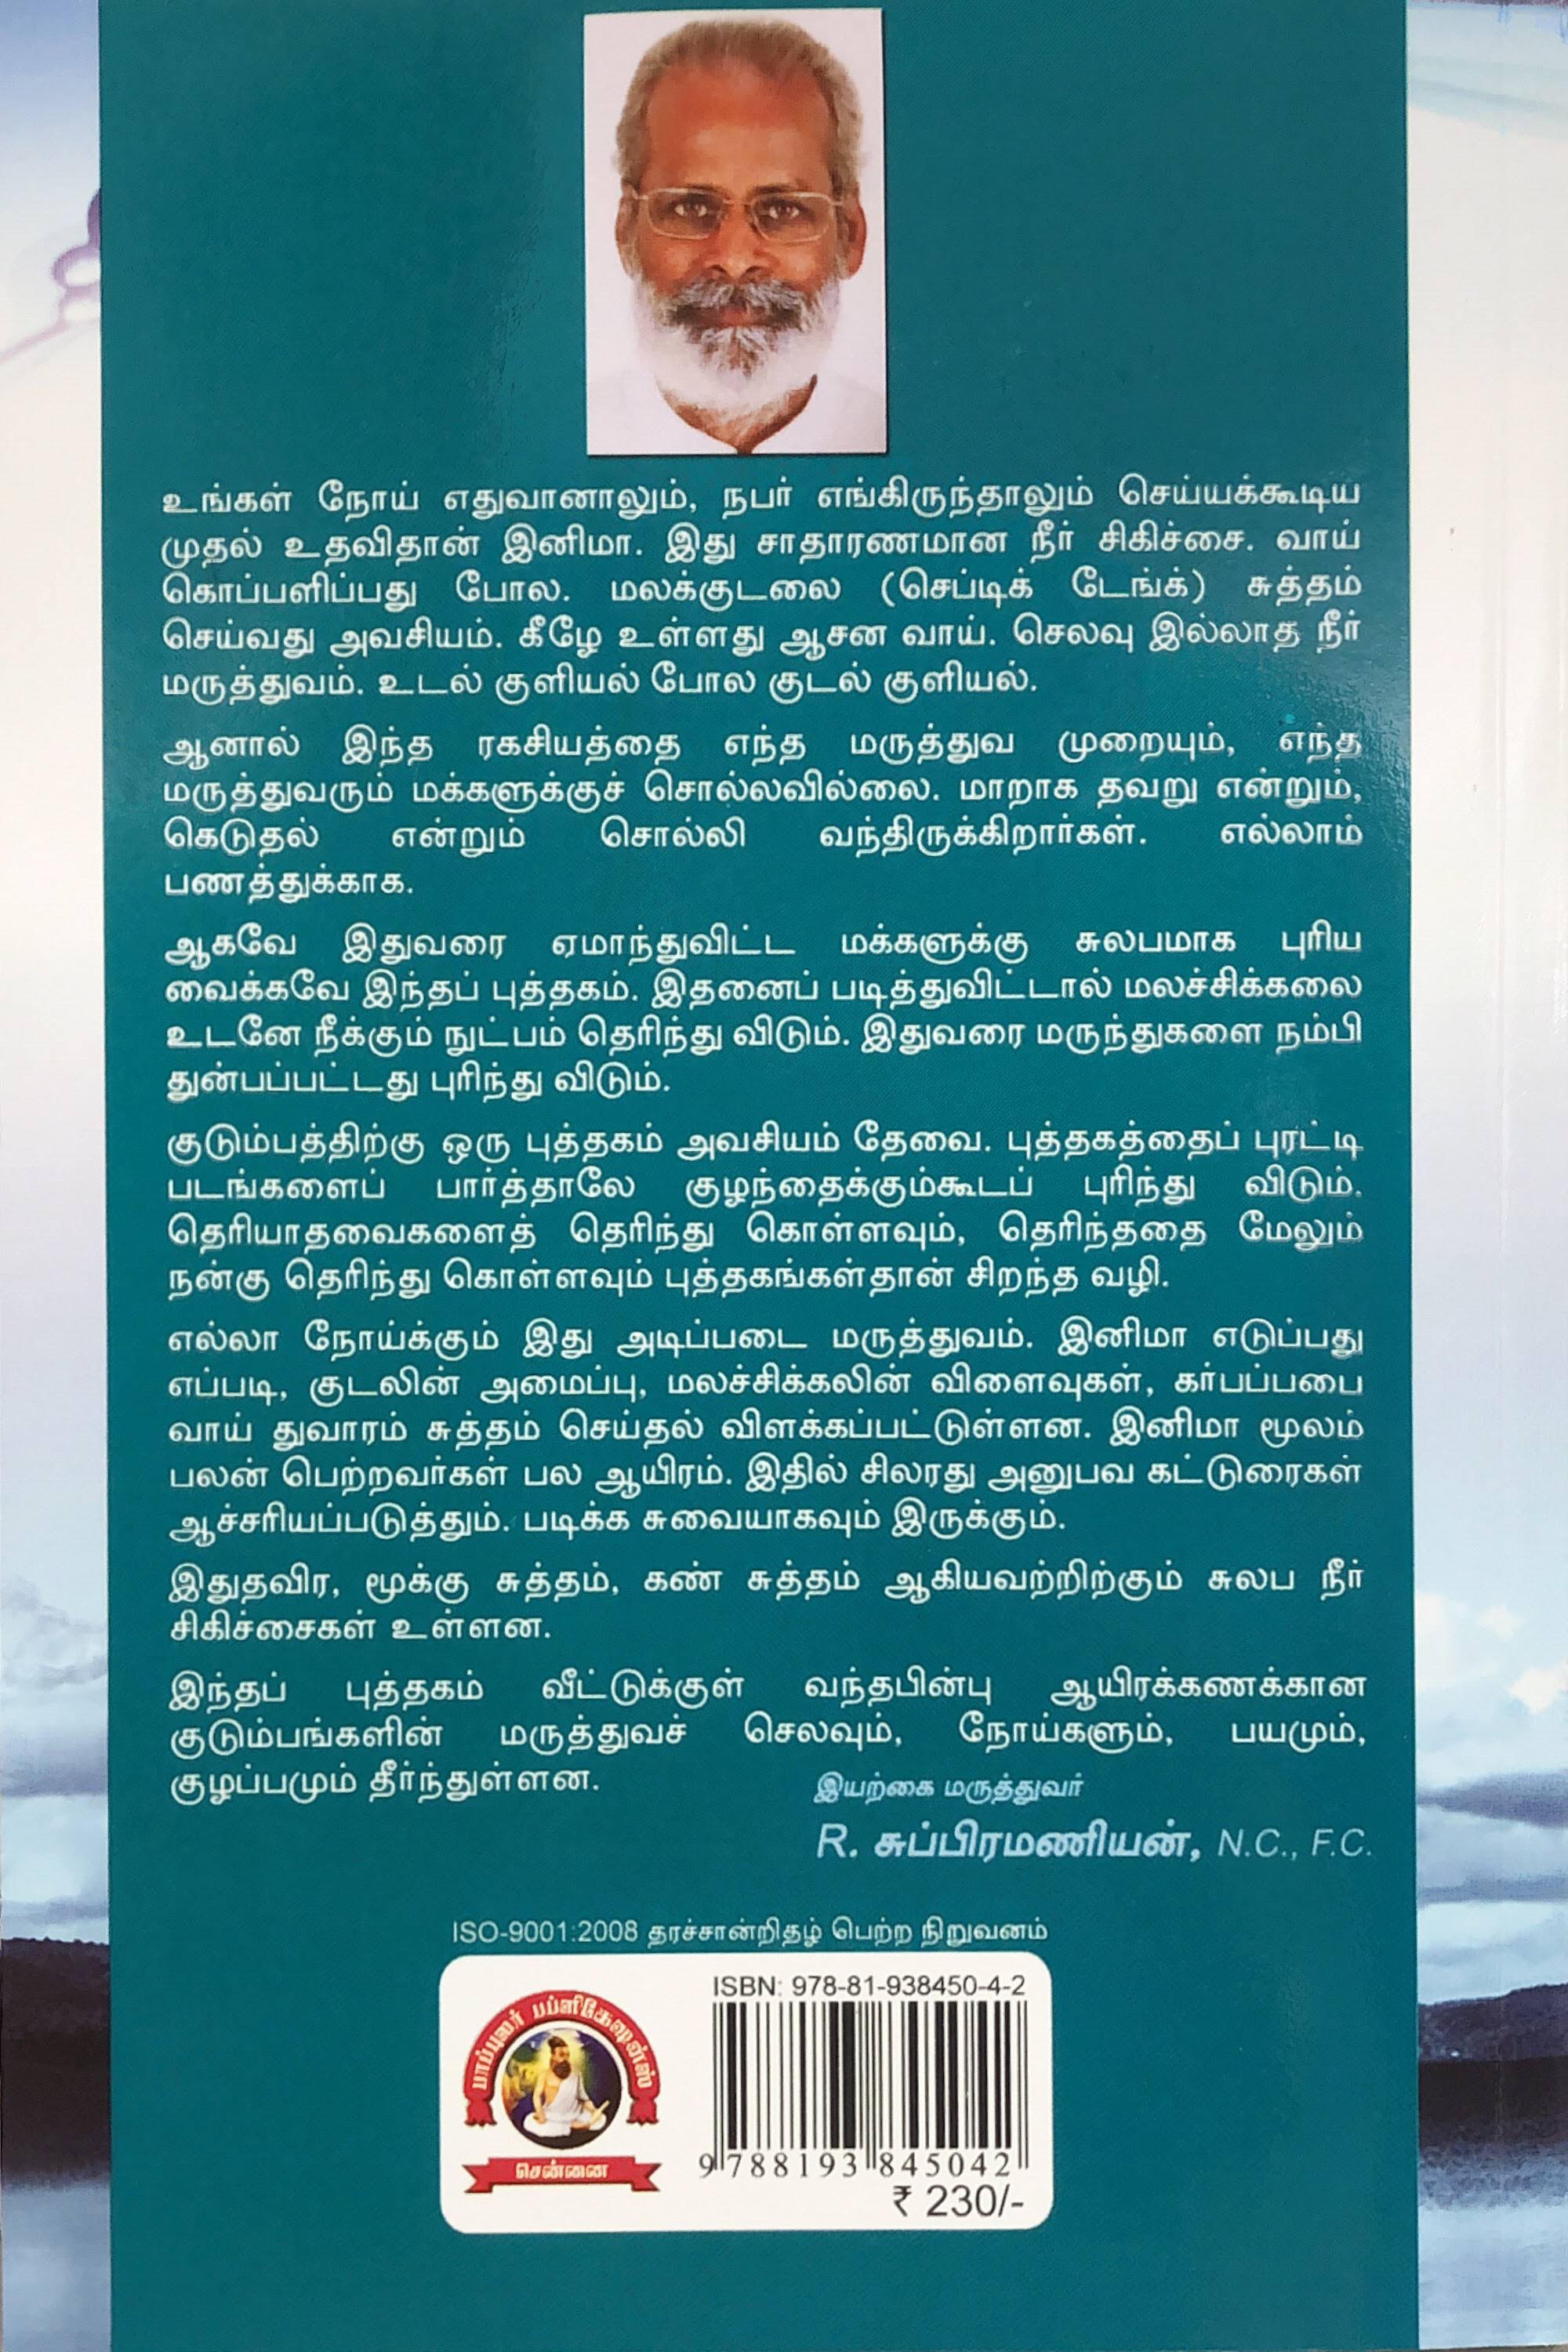 உங்கள் நோய் எதுவானாலும், நபர் எங்கிருந்தாலும் செய்யக்கூடிய
முதல் உதவிதான் இனிமா. இது சாதாரணமான நீர் சிகிச்சை. வாய்
கொப்பளிப்பது போல. மலக்குடலை (செப்டிக் டேங்க்) சுத்தம்
செய்வது அவசியம். கீழே உள்ளது ஆசன வாய். செலவு இல்லாத நீர்
மருத்துவம். உடல் குளியல் போல குடல் குளியல்.
ஆனால் இந்த ரகசியத்தை எந்த மருத்துவ முறையும், எந்த
மருத்துவரும் மக்களுக்குச் சொல்லவில்லை. மாறாக தவறு என்றும்,
கெடுதல் என்றும் சொல்லி வந்திருக்கிறார்கள். எல்லாம்
பணத்துக்காக.
ஆகவே இதுவரை ஏமாந்துவிட்ட மக்களுக்கு சுலபமாக புரிய
வைக்கவே இந்தப் புத்தகம். இதனைப் படித்துவிட்டால் மலச்சிக்கலை
உடனே நீக்கும் நுட்பம் தெரிந்து விடும். இதுவரை மருந்துகளை நம்பி
துன்பப்பட்டது புரிந்து விடும்.
குடும்பத்திற்கு ஒரு புத்தகம் அவசியம் தேவை. புத்தகத்தைப் புரட்டி
படங்களைப் பார்த்தாலே குழந்தைக்கும்கூடப் புரிந்து விடும்.
தெரியாதவைகளைத் தெரிந்து கொள்ளவும், தெரிந்ததை மேலும்
நன்கு தெரிந்து கொள்ளவும் புத்தகங்கள்தான் சிறந்த வழி.
எல்லா நோய்க்கும் இது அடிப்படை மருத்துவம். இனிமா எடுப்பது
எப்படி, குடலின் அமைப்பு, மலச்சிக்கலின் விளைவுகள், கர்பப்பை
வாய் துவாரம் சுத்தம் செய்தல் விளக்கப்பட்டுள்ளன. இனிமா மூலம்
பலன் பெற்றவர்கள் பல ஆயிரம். இதில் சிலரது அனுபவ கட்டுரைகள்
ஆச்சரியப்படுத்தும். படிக்க சுவையாகவும் இருக்கும்.
இதுதவிர, மூக்கு சுத்தம், கண் சுத்தம் ஆகியவற்றிற்கும் சுலப நீர்
சிகிச்சைகள் உள்ளன.
இந்தப் புத்தகம் வீட்டுக்குள் வந்தபின்பு ஆயிரக்கணக்கான
குடும்பங்களின் மருத்துவச் செலவும், நோய்களும், பயமும்,
குழப்பமும் தீர்ந்துள்ளன.
இயற்கை மருத்துவர்
R. சுப்பிரமணியன், N.C., F.C.
ISO-9001:2008 தரச்சான்றிதழ் பெற்ற நிறுவனம்
ISBN: 978-81-938450-4-2
பாப்புலர் பப்ளிகேஷன்ஸ்
சென்னை
9 788193 845042
₹ 230/-